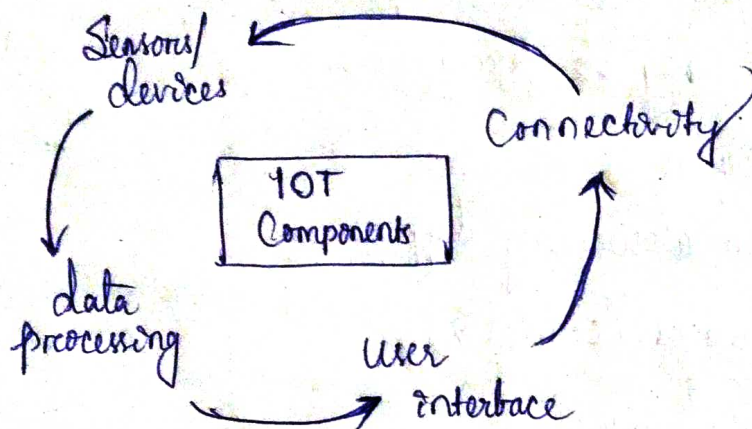 Sensors/
devices
Connectivity
IOT
Components
data
processing
user
interface